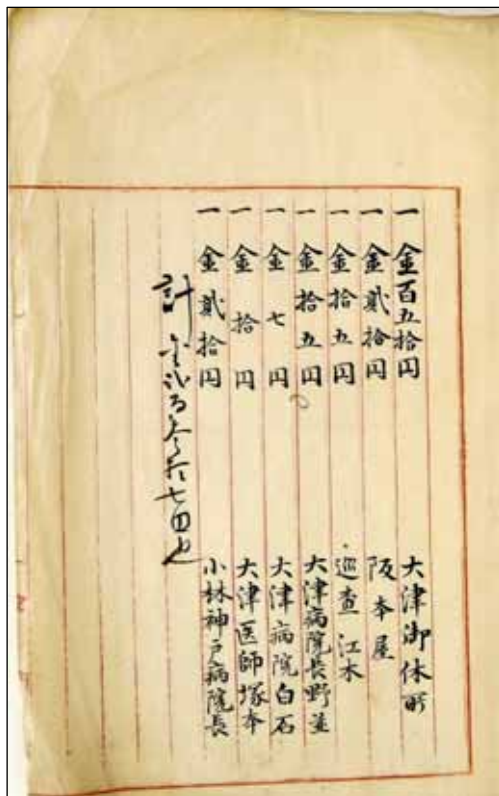 一 金百五拾円 大津御休所
一 金貳拾円 阪本屋
一 金拾五円 巡査 江木
一 金拾五円 大津病院長野並
一 金七円 大津病院白石
一 金拾円 大津医師塚本
一 金貳拾円 小林神戸病院長
計 金弐百三拾七円也